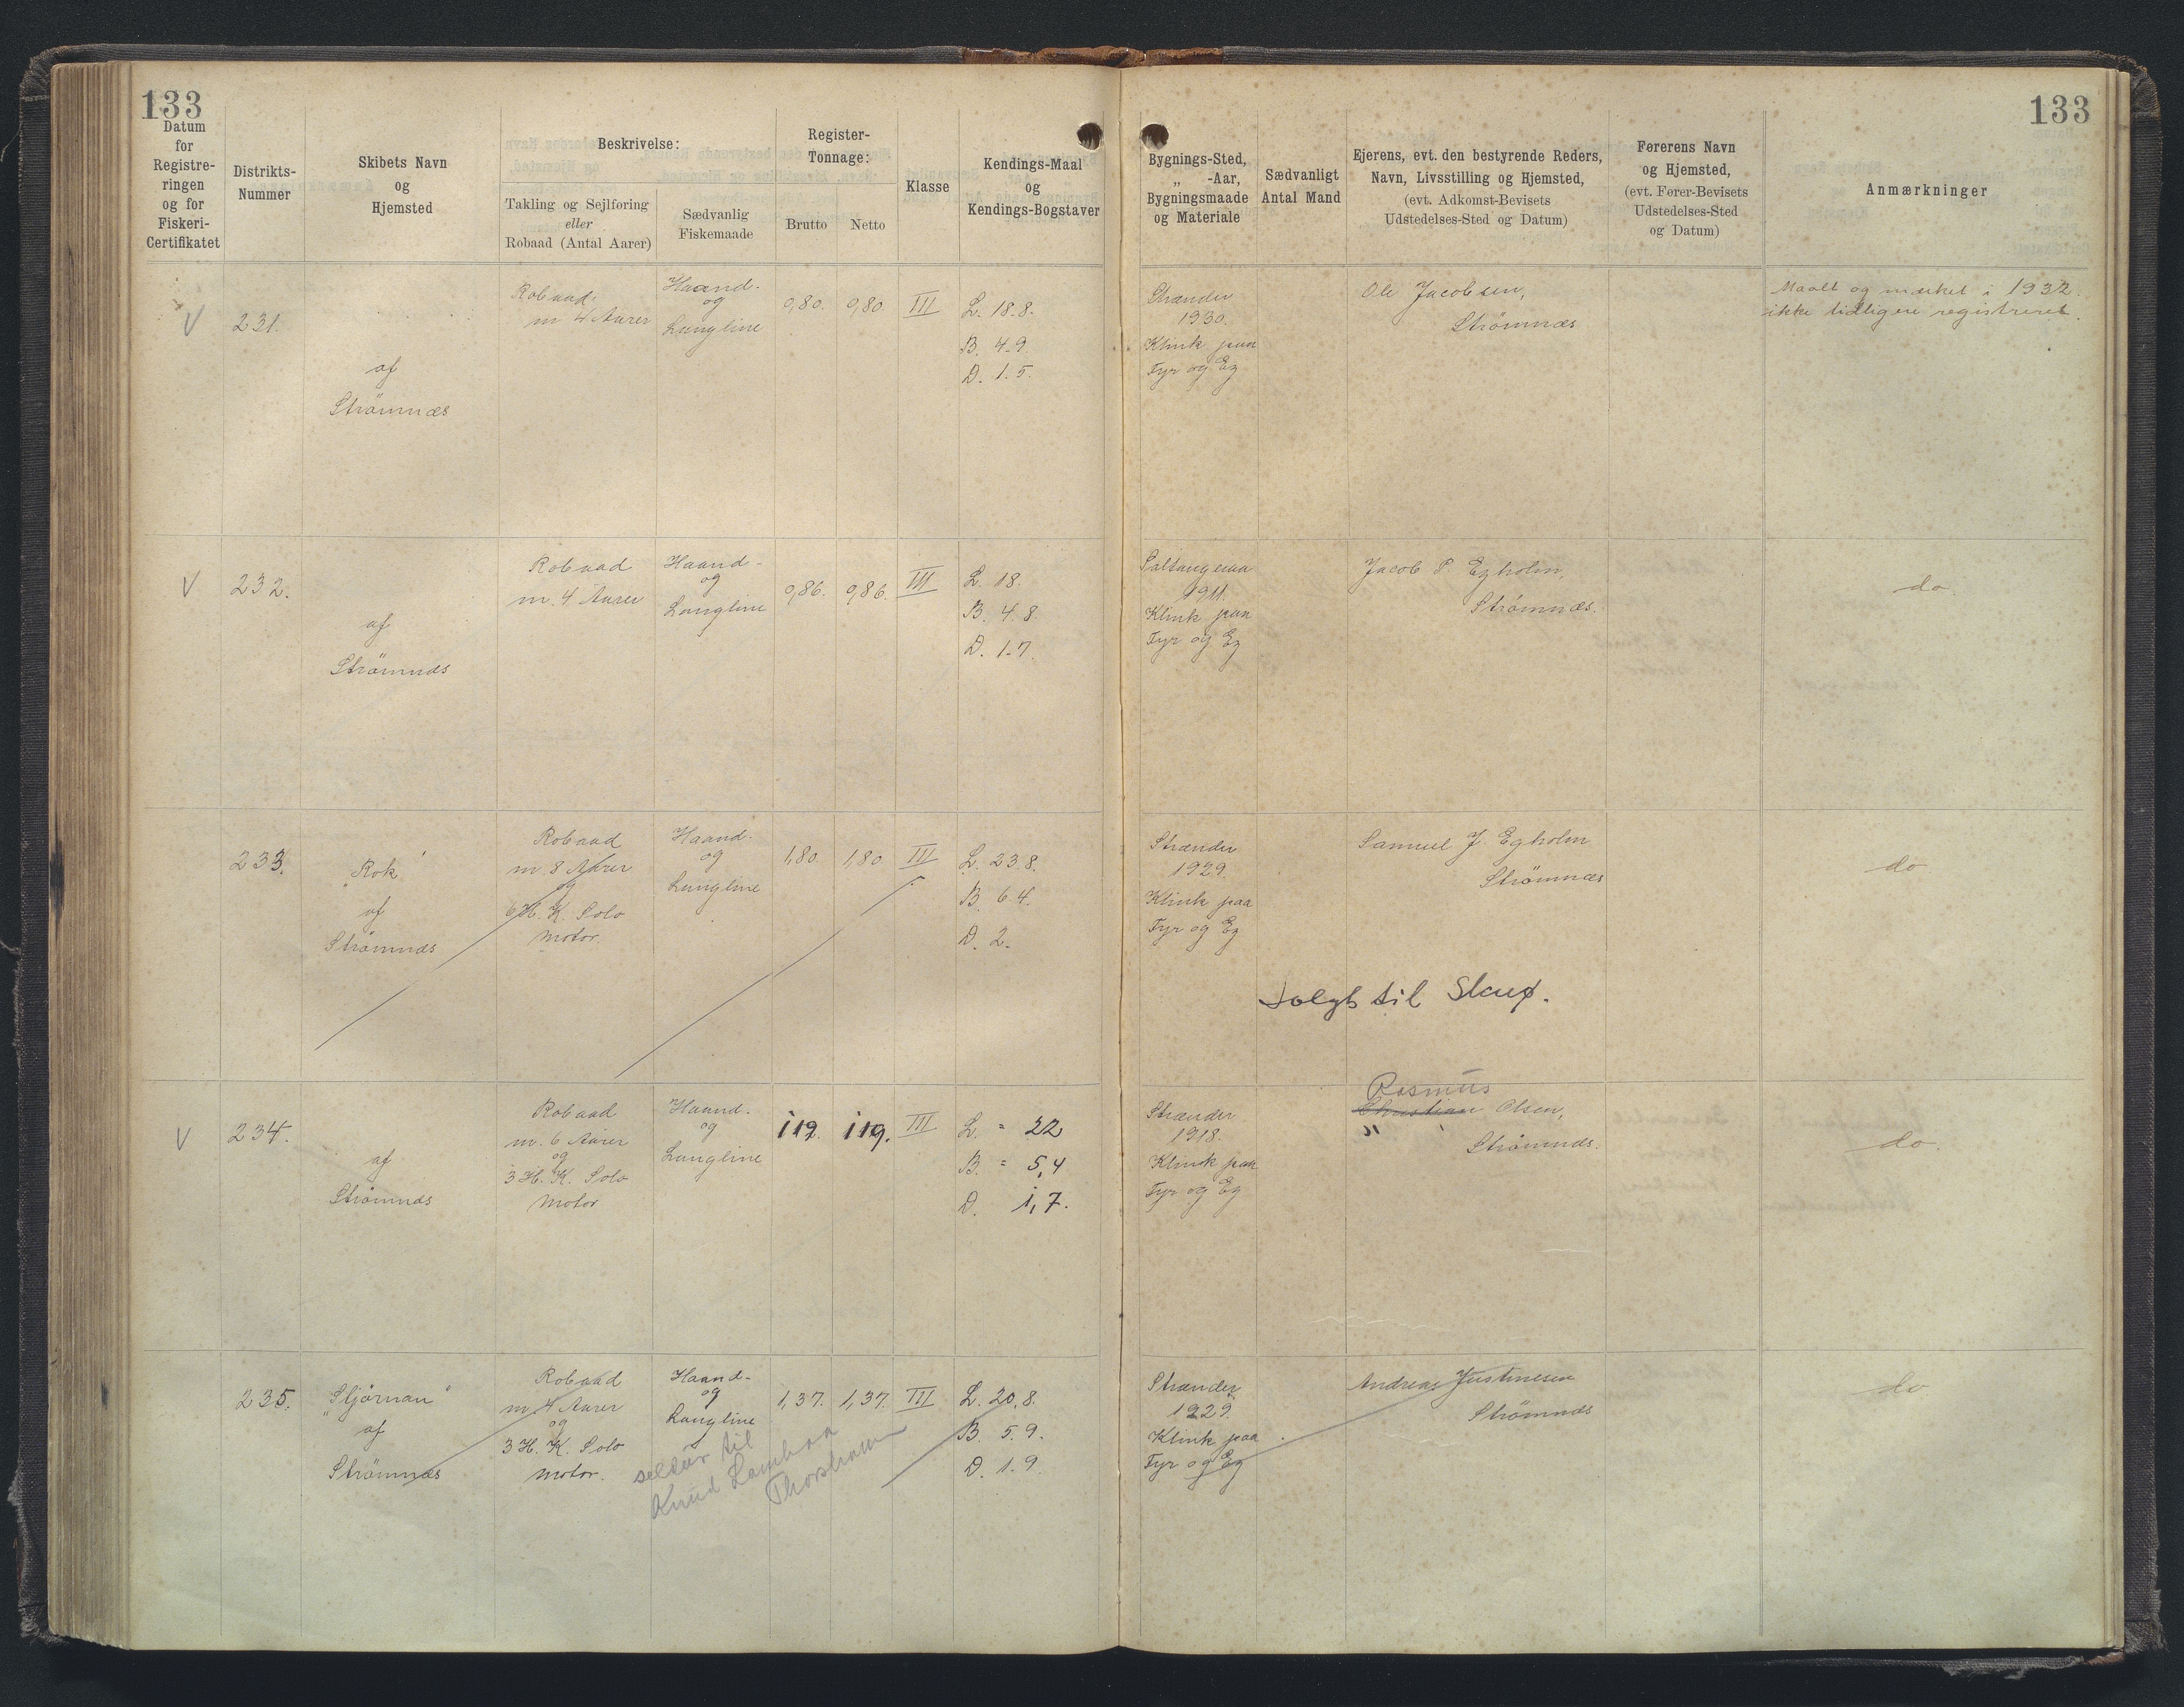 133
133
Datum
for
Registre-
ringen
og for
Fiskeri-
Certifikatet
Distrikts-
Nummer
Skibets Navn
og
Hjemsted
Beskrivelse:
Takling og Sejlføring
eller
Robaad (Antal Aarer)
Sædvanlig
Fiskemaade
Register-
Tonnage:
Brutto
Netto
Klasse
Kendings-Maal
og
Kendings-Bogstaver
Bygnings-Sted,
„ -Aar,
Bygningsmaade
og Materiale
Sædvanligt
Antal Mand
Ejerens, evt. den bestyrende Reders,
Navn, Livsstilling og Hjemsted,
(evt. Adkomst-Bevisets
Udstedelses-Sted og Datum)
Førerens Navn
og Hjemsted,
(evt. Fører-Bevisets
Udstedelses-Sted
og Datum)
Anmærkninger
V
231.
af
Strömnæs
Robaad.
m 4 Aarer
Haand-
og
Langline
0,80.
0,80.
III
L. 18.8.
B. 4.9.
D. 1.5.
Strænder
1930.
Klink paa
Fyr og Eg
Ole Jacobsen,
Strömnæs
Maalt og mærket i 1932.
ikke tidligere registreret.
V
232.
af
Strömnæs
Robaad
m. 4 Aarer
Haand-
og
Langline
0,86.
0,86.
III
L. 18.
B. 4.8.
D. 1.7.
Saltangeraa
1911.
Klink paa
Fyr og Eg
Jacob P. Egholm,
Strömnæs.
do
233.
„Rok"
af
Strömnæs
Robaad
m 8 Aarer
og
6 H. K. Solo
Motor.
Haand-
og
Langline
1,80.
1,80
III
L. 23.8.
B. 6.4.
D. 2.
Strænder
1929.
Klink paa
Fyr og Eg
Samuel J Egholm
Strömnæs
do
solgt til Skuø.
V
234.
af
Strömnæs
Robaad
m. 6 Aarer
og
3 H. K. Solo
Motor
Haand-
og
Langline
119.
119.
III
L. = 22
B. = 5,4
D. 1,7.
Strænder
1918.
Klink paa
Fyr og Eg
Rasmus
Christian Olsen,
Strömnæs.
do.
235.
„Stjörnan"
af
Strömnæs
Robaad
m. 4 Aarer
og
3 H. K. Solo
Motor.
Haand-
og
Langline
1,37.
1,37.
III
L. 20,8.
B. 5.9.
D. 1.9.
Strænder
1929.
Klink paa
Fyr og Eg
Andreas Justinesen
Strömnæs
do.
seldur til
Knud Lambaa